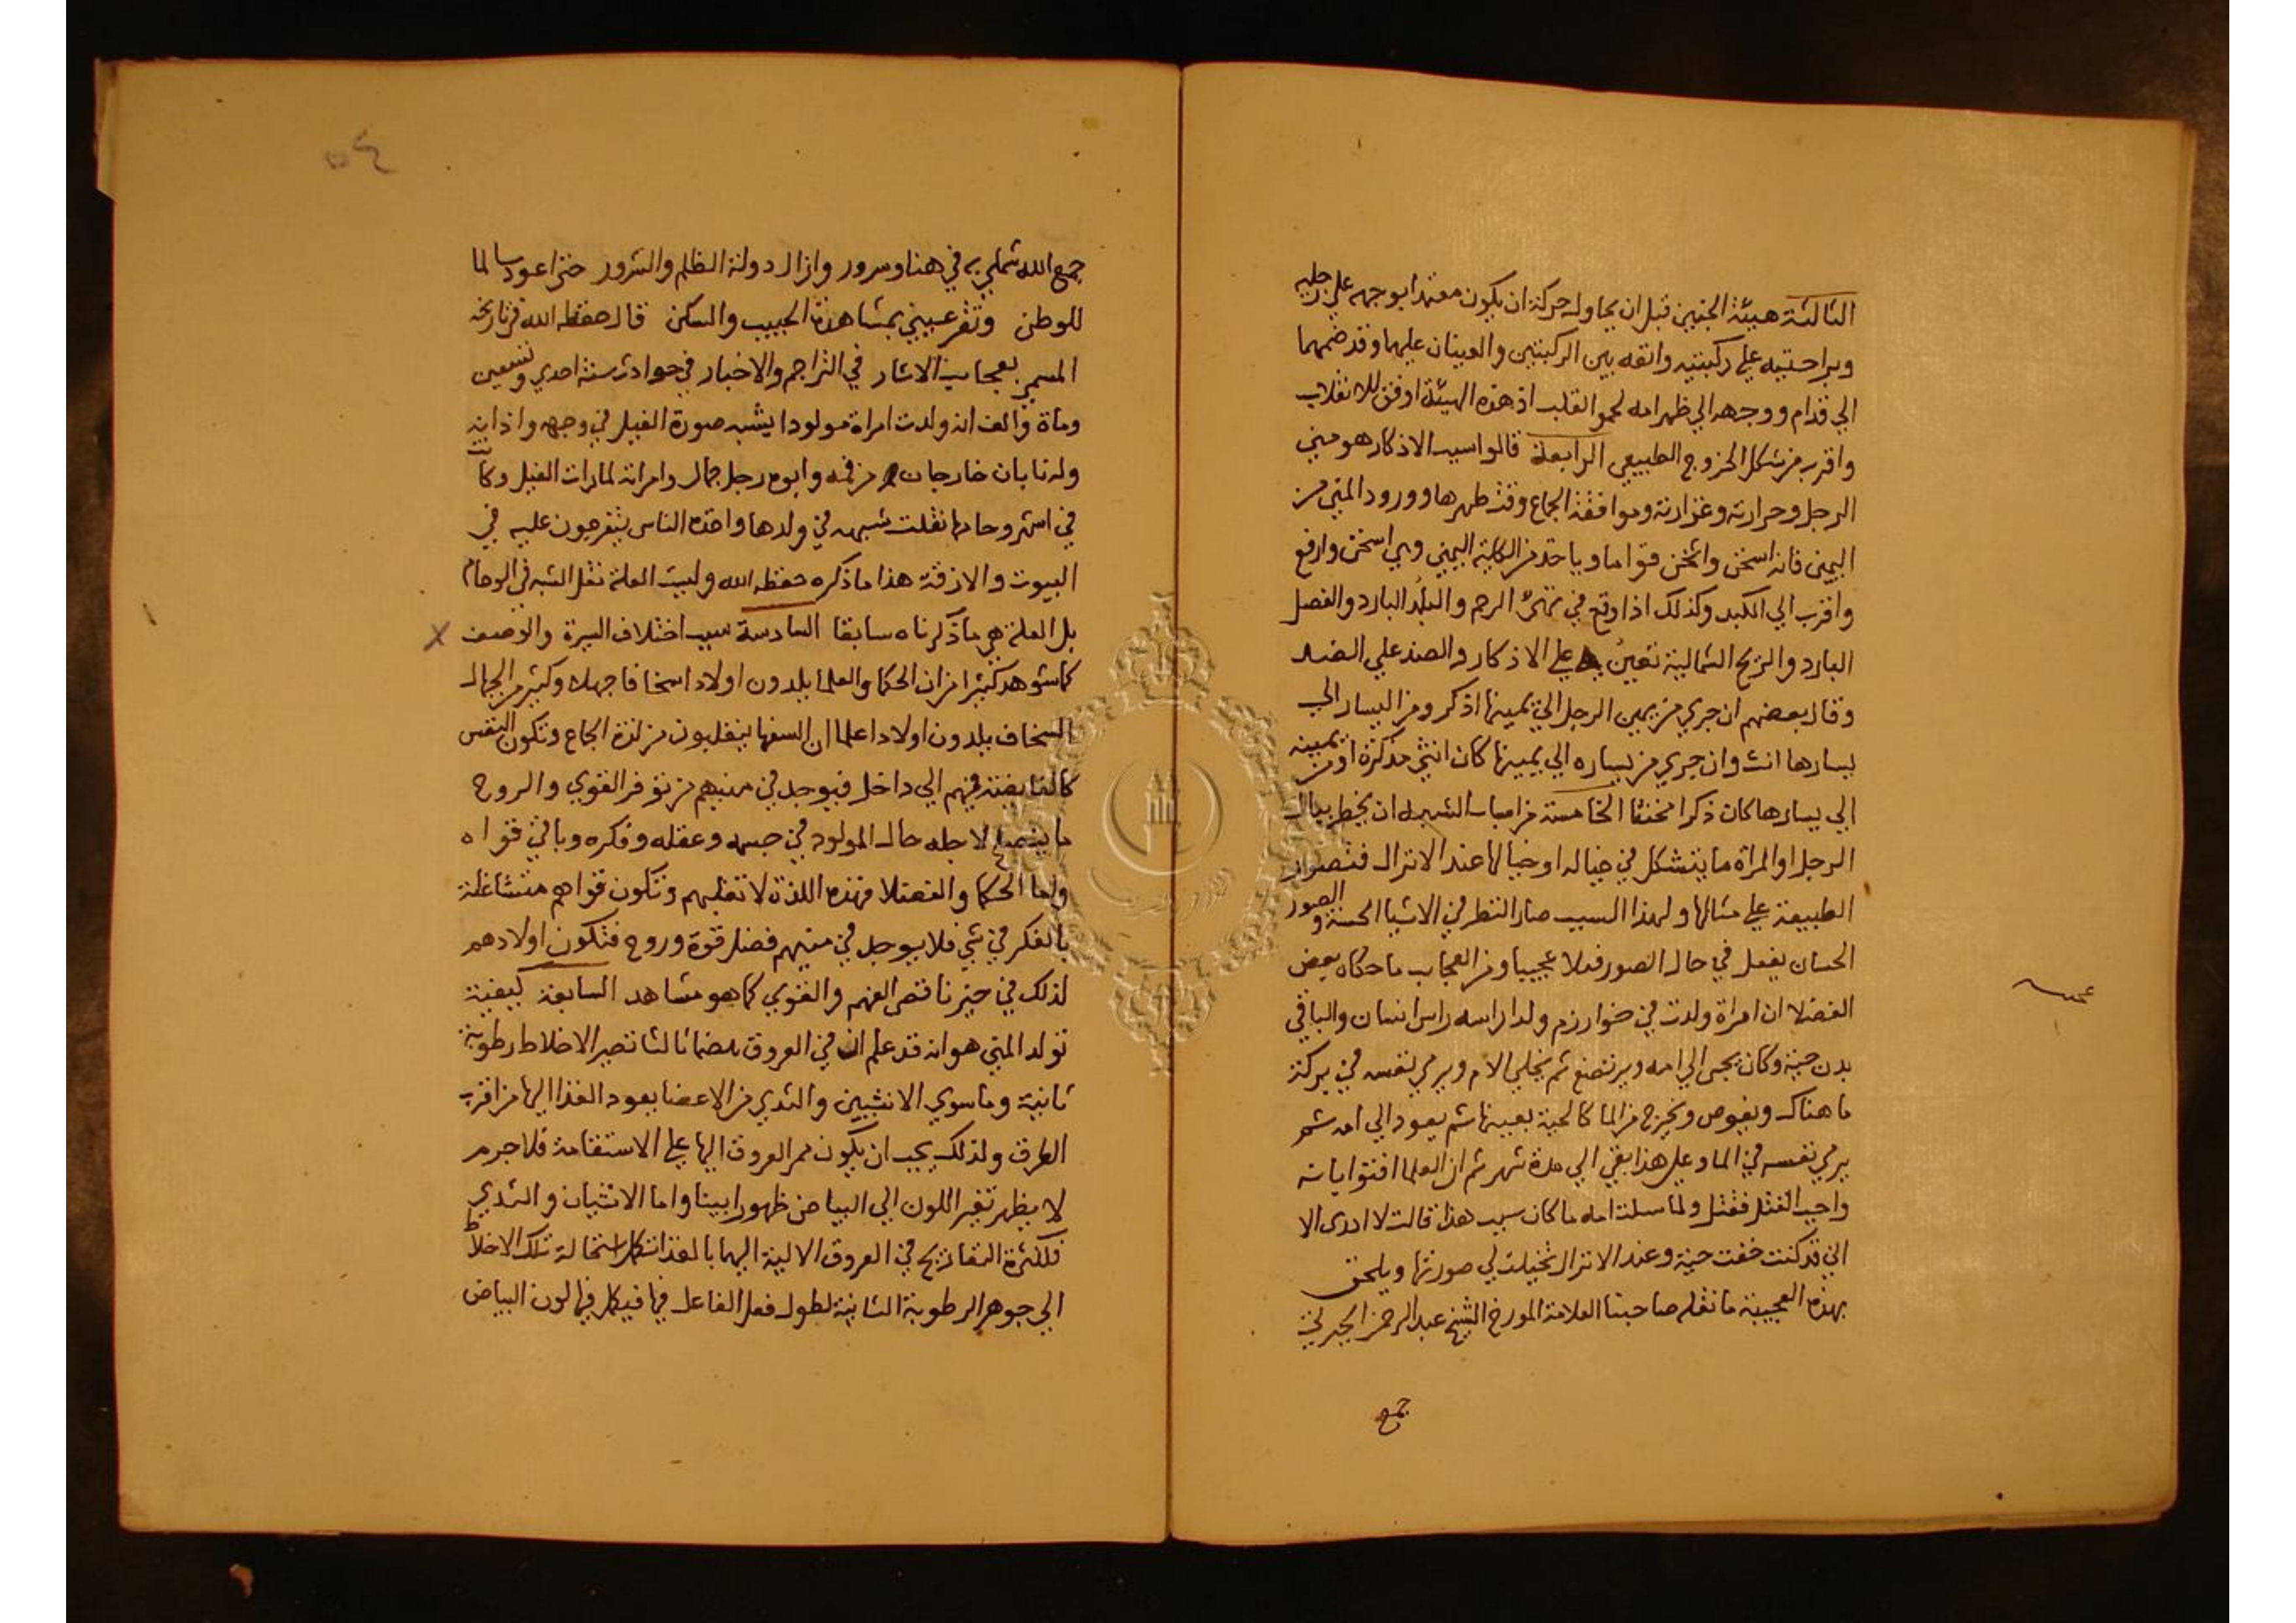 الثالثة هيئة الجنين قبل ان يحاول حركة ان يكون معتمدا بوجهه علي رجليه
وبراحتيه علي ركبتيه وانفه بين الركبتين والعينان عليهما وقد ضمهما
الي قدام ووجهه الي ظهر امه لحمو القلب اذ هذه الهيئة اوفق للانقلاب
واقرب من شكل الخروج الطبيعي الرابعة قالوا سبب الاذكار هو مني
الرجل وحرارته وغزارته وموافقة الجماع وقت طهرها وورود المني من
اليمنى فانه اسخن واثخن قواما وياخذ من الكلية اليمني وهي اسخن وارفع
واقرب الي الكبد وكذلك اذا وقع في يمين الرحم والبلد البارد والفصل
البارد والريح الشمالية تعين علي الاذكار والضد علي الضد
وقال بعضهم ان جري من يمين الرجل الي يمينها اذكر ومن اليسار الي
يسارها انث وان جري من يساره الي يمينها كان انثي مذكرة او من يمينه
الي يسارها كان ذكرا مخنثا الخامسة من اسباب الشبه ان يخطر ببال
الرجل او المراة ما يتشكل في خياله او خيالها عند الانزال فتصور
الطبيعة علي مثالها ولهذا السبب صار النظر في الاشيا الحسنة والصور
الحسان يفعل في حال الصور فعلا عجيبا ومن العجايب ما حكاه بعض
الفضلا ان امراة ولدت في خوارزم ولدا راسه راس انسان والباقي
بدن حية وكان يجى الي امه ويرتضع ثم يخلي الام ويرمي نفسه في بركة
ما هناك ويغوص ويخرج من الما كالحية بعينها ثم يعود الي امه ثم
يرمي نفسه في الما وعلي هذا بقي الي مدة شهر ثم ان العلما افتوا بانه
واجب القتل فقتل ولما سيلت امه ما كان سبب هذا قالت لا ادري الا
اني قد كنت خفت حية وعند الانزال تخيلت لي صورتها ويلحق
بهذه العجيبة ما نقله صاحبنا العلامة المورخ الشيخ عبد الرحمن الجبرتي
جمع
٥٤
جمع الله شملي به في هنا وسرور وازال دولة الظلم والشرور حتي اعود سالما
للوطن وتقر عيني بمشاهدة الحبيب والسكن قال حفظه الله في تاريخه
المسمي بعجايب الاثار في التراجم والاخبار في حوادث سنة احدي وتسعين
وماة والف انه ولدت امراة مولودا يشبه صورة الفيل في وجهه واذانه
وله نابان خارجان من فمه وابوه رجل جمال وامراته لما رات الفيل وكانت
في اشهر وحامها نقلت شبهه في ولدها واخذه الناس يتفرجون عليه في
البيوت والازقة هذا ما ذكره حفظه الله وليست العلة نقل الشبه في الوحام
بل العلة هي ما ذكرناه سابقا السادسة سبب اختلاف السيرة والوصف
كما شوهد كثيرا من ان الحكما والعلما يلدون اولادا سخافا جهلا وكثير من الجهال
السخاف يلدون اولادا علما ان السفها ينقلبون من لذة الجماع وتكون النفس
كالفايضة فيهم الي داخل فيوجد في منيهم من توفر القوي والروح
ما ينصلح لاجله حال المولود في جسمه وعقله وفكره وباقي قواه
واما الحكما والفضلا فهذه اللذة لا تغلبهم وتكون قواهم متشاغلة
بالفكر في شي فلا يوجد في منيهم فضل قوة وروح فتكون اولادهم
لذلك في حيز ناقص الفهم والقوي كما هو مشاهد السابعة كيفية
تولد المني هو انه قد علم ان في العروق هضما ثالثا تصير الاخلاط رطوبة
ثانية وما سوي الانثيين والثدي من الاعضا يعود الغذا اليها من اقرب
الطرق ولذلك يجب ان يكون ممر العروق اليها علي الاستقامة فلا جرم
لا يظهر تغير اللون الي البياض ظهورا بينا واما الانثيان والثدي
فلكثرة التفاريج في العروق الاتية اليهما بالغذا تكمل استحالة تلك الاخلاط
الي جوهر الرطوبة الثانية لطول فعل الفاعل فيها فيكمل فيها لون البياض